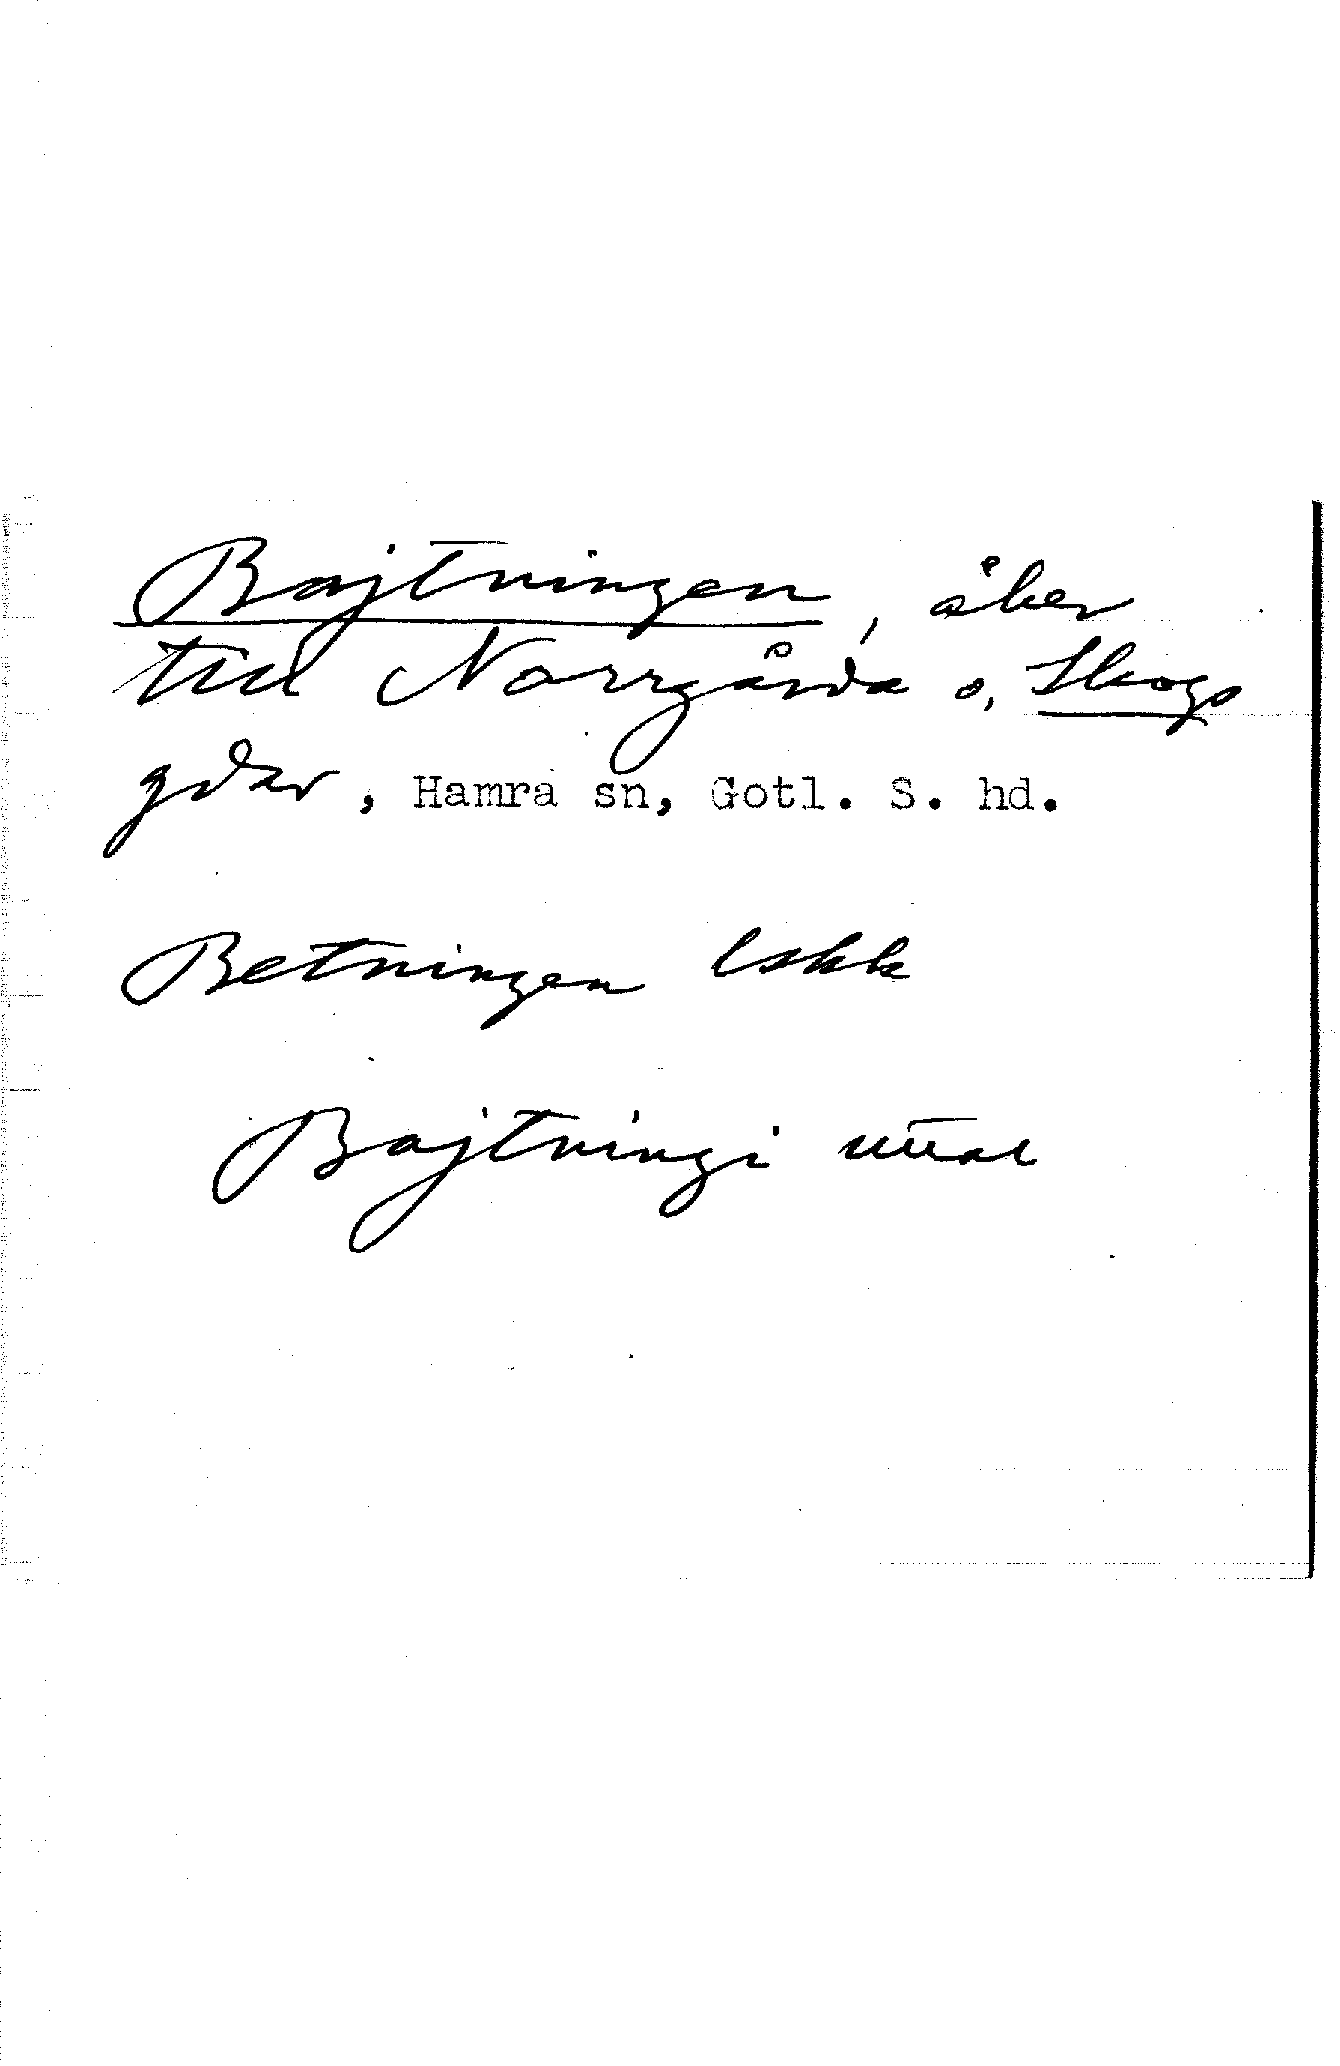 Bajtningen, åker
till Norrgårda o, Skogs
gdar, Hamra sn, Gotl. S. hd.
Betningen Lskk
Bajtningi uttal